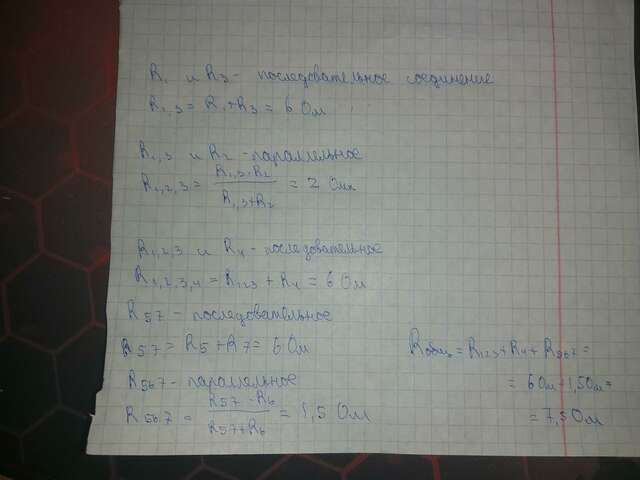 R₁ и R₃ - последовательное соединение
R₁,₃ = R₁+R₃ = 6 Ом
R₁,₃ и R₂ - параллельное
R₁,₂,₃ = R₁,₃·R₂ / R₁,₃+R₂ = 2 Ом
R₁,₂,₃ и R₄ - последовательное
R₁,₂,₃,₄ = R₁₂₃ + R₄ = 6 Ом
R₅₇ - последовательное
R₅₇ = R₅+R₇ = 6 Ом
R₅₆₇ - параллельное
R₅₆₇ = R₅₇·R₆ / R₅₇+R₆ = 1,5 Ом
Rобщ = R₁₂₃+R₄+R₅₆₇ =
= 6 Ом+1,5 Ом =
= 7,5 Ом